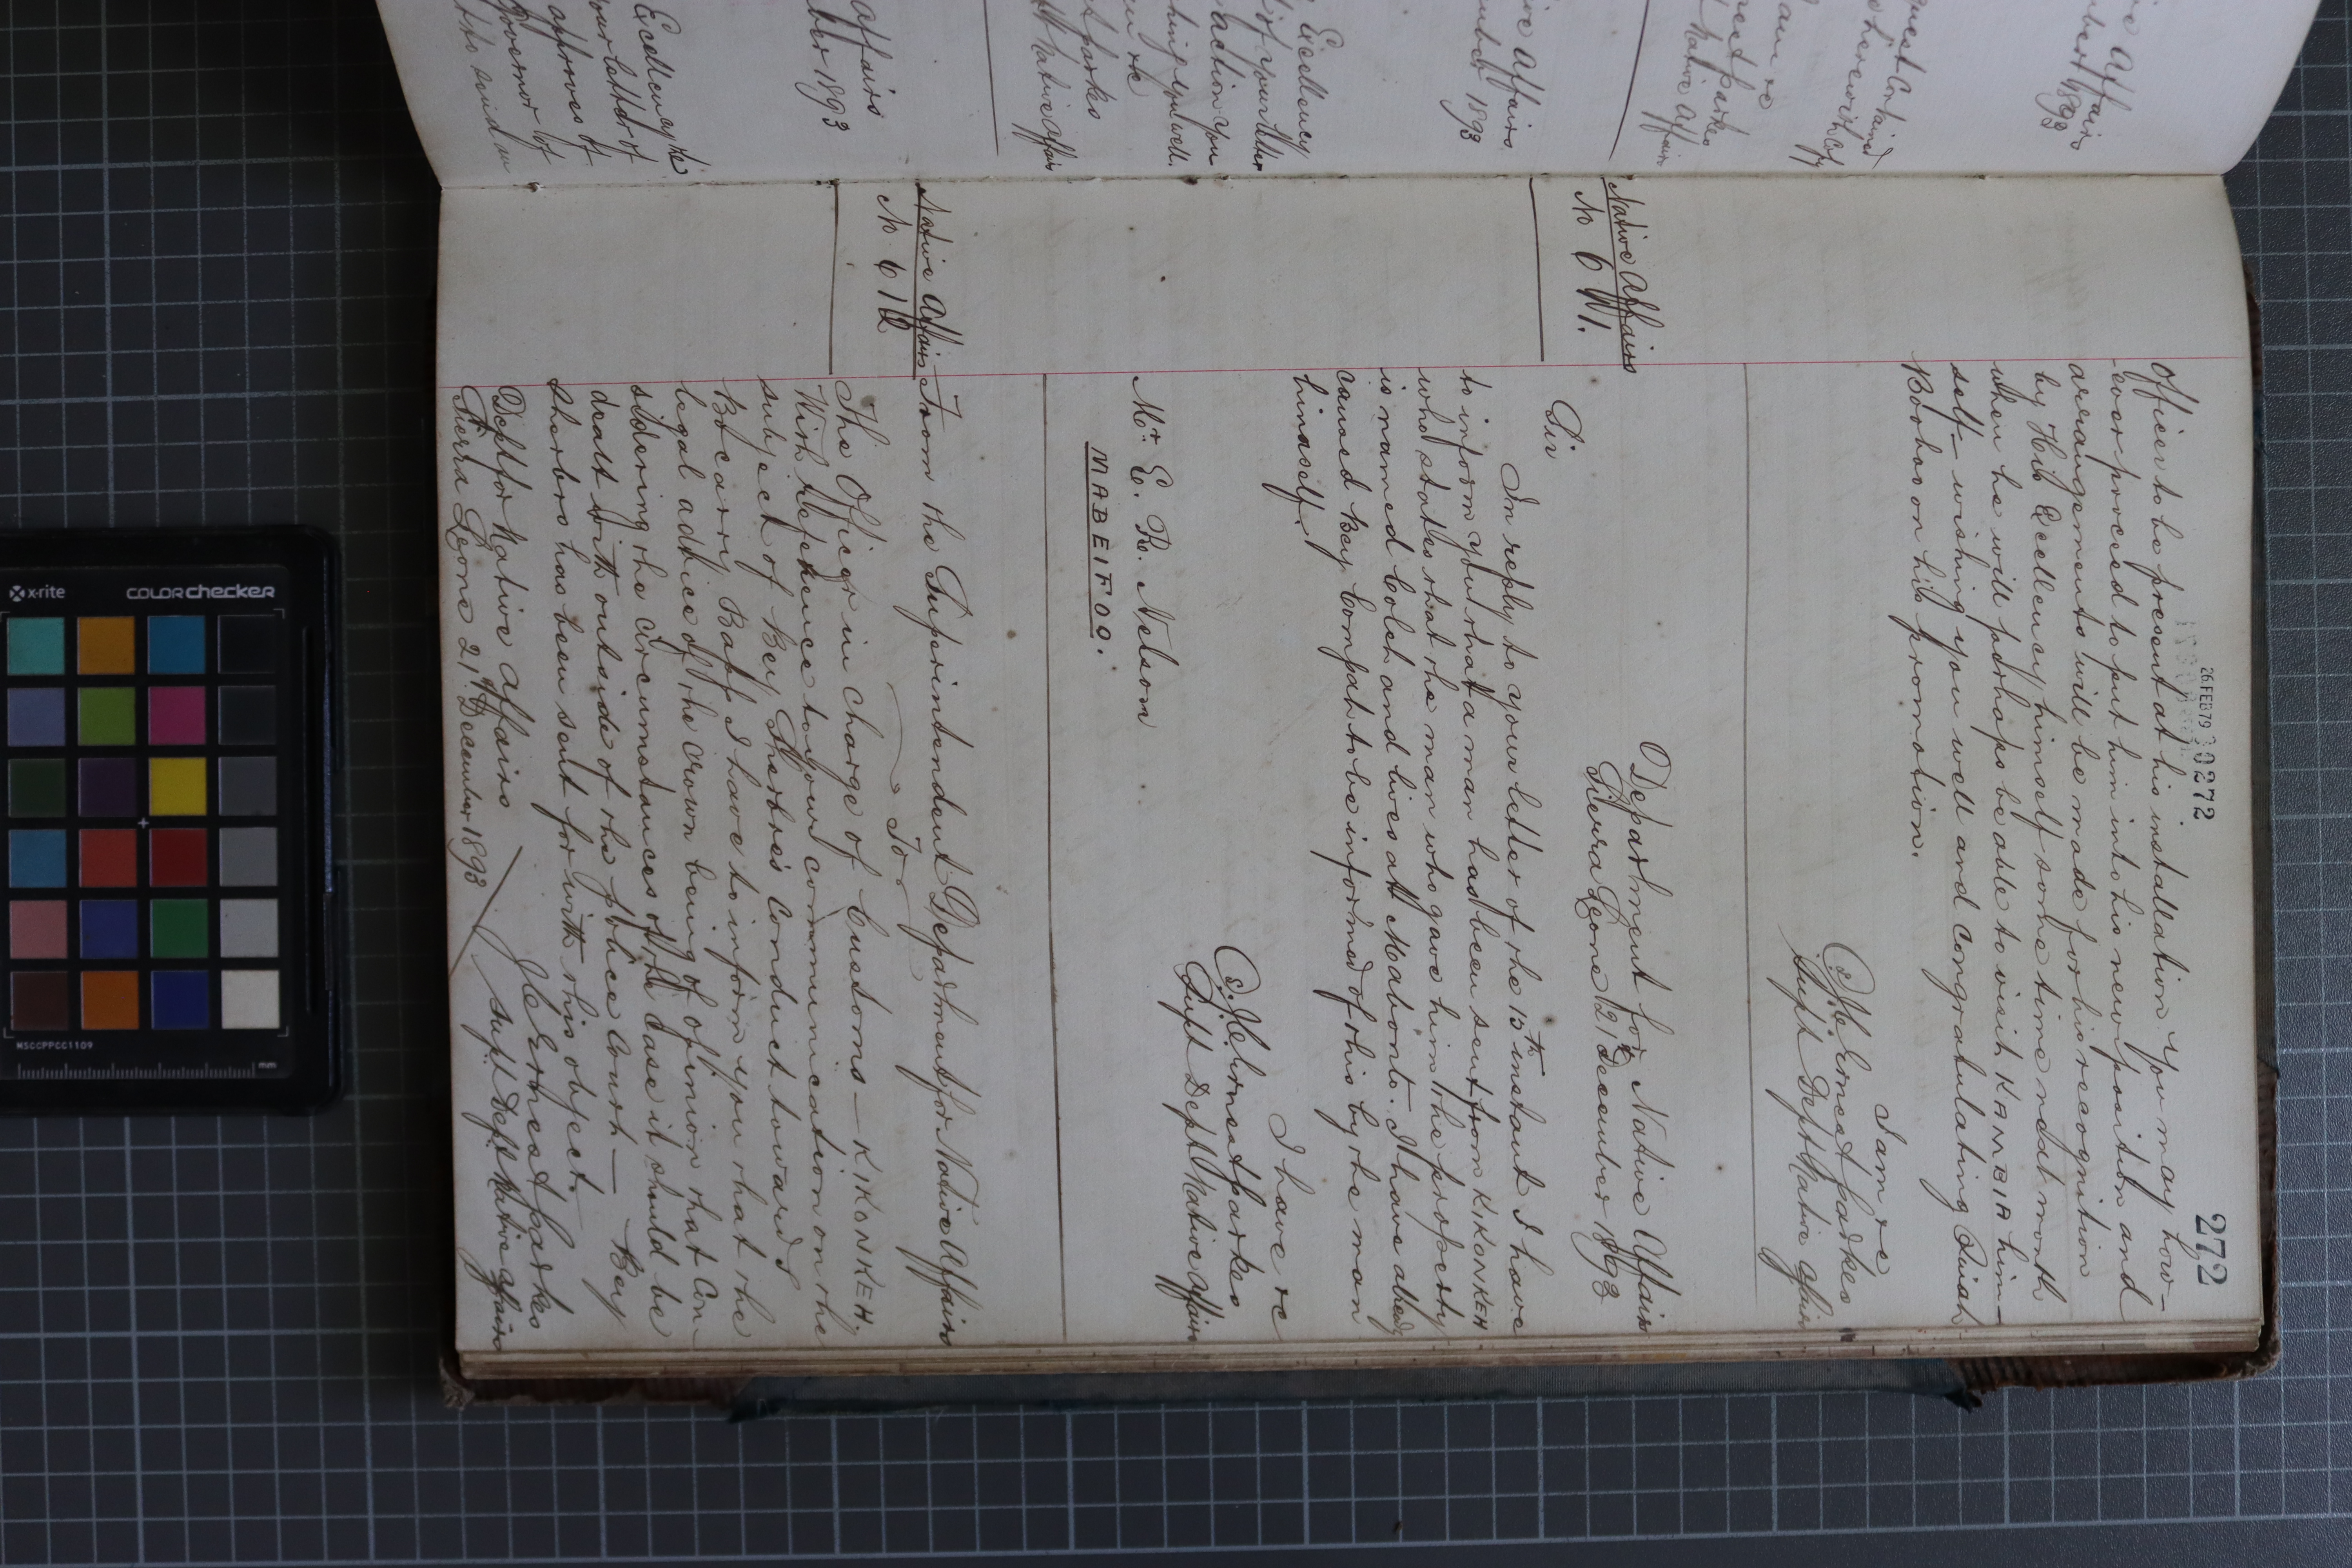 272
26 FEB 79 30272
Officer to be present at his installation. You may how-
-ever proceed to put him into his new position and
arrangements will be made for his recognition
by His Excellency himself some time next month
when he will perhaps be able to visit KAMBIA him-
self- wishing you well and congratulating Quiah
Booboo on his promotion.
I am &c
J. C. Ernest Parkes
Supt Dept Native Affairs
Native Affairs
No 611.
Department for Native Affairs
Sierra Leone 21st December 1893
Sir
In reply to your letter of the 15th instant I have
to inform you that a man has been sent from KIKONKEH
who states that the man who gave him the property
is named Coleh and lives at Mabonto. I have already
caused Bey Compah to be informed of this by the man
himself.
I have &c
J. C. Ernest Parkes
Supt Dept Native Affairs
Mr. E. R. Nelson
MABEIFOO.
Native Affairs
No 612
From the Superintendent Department for Native Affairs
To
The Officer in charge of Customs - KIKONKEH.
With reference to your communication on the
subject of Bey Sherbro's conduct towards
Bocarry Baff I have to inform you that the
legal advice of the Crown being of opinion that con-
sidering the circumstances of the case it should be
dealt with outside of the police Court - Bey
Sherbro has been sent for with this object.
J. C. Ernest Parkes
Dept for Native Affairs
Supt Dept Native Affairs
Sierra Leone 21st December 1893
Affairs
1893
quest contained
herewith copy
I am &c
Ernest Parkes
Native Affairs
Affairs
1893
Excellency
of your letter
action you
you well.
&c
Parkes
Native Affairs
Affairs
1893
Excellency the
your letter of
approves of
Governor of
to send an
x-rite
colorchecker
MSCCPPCC1109
mm